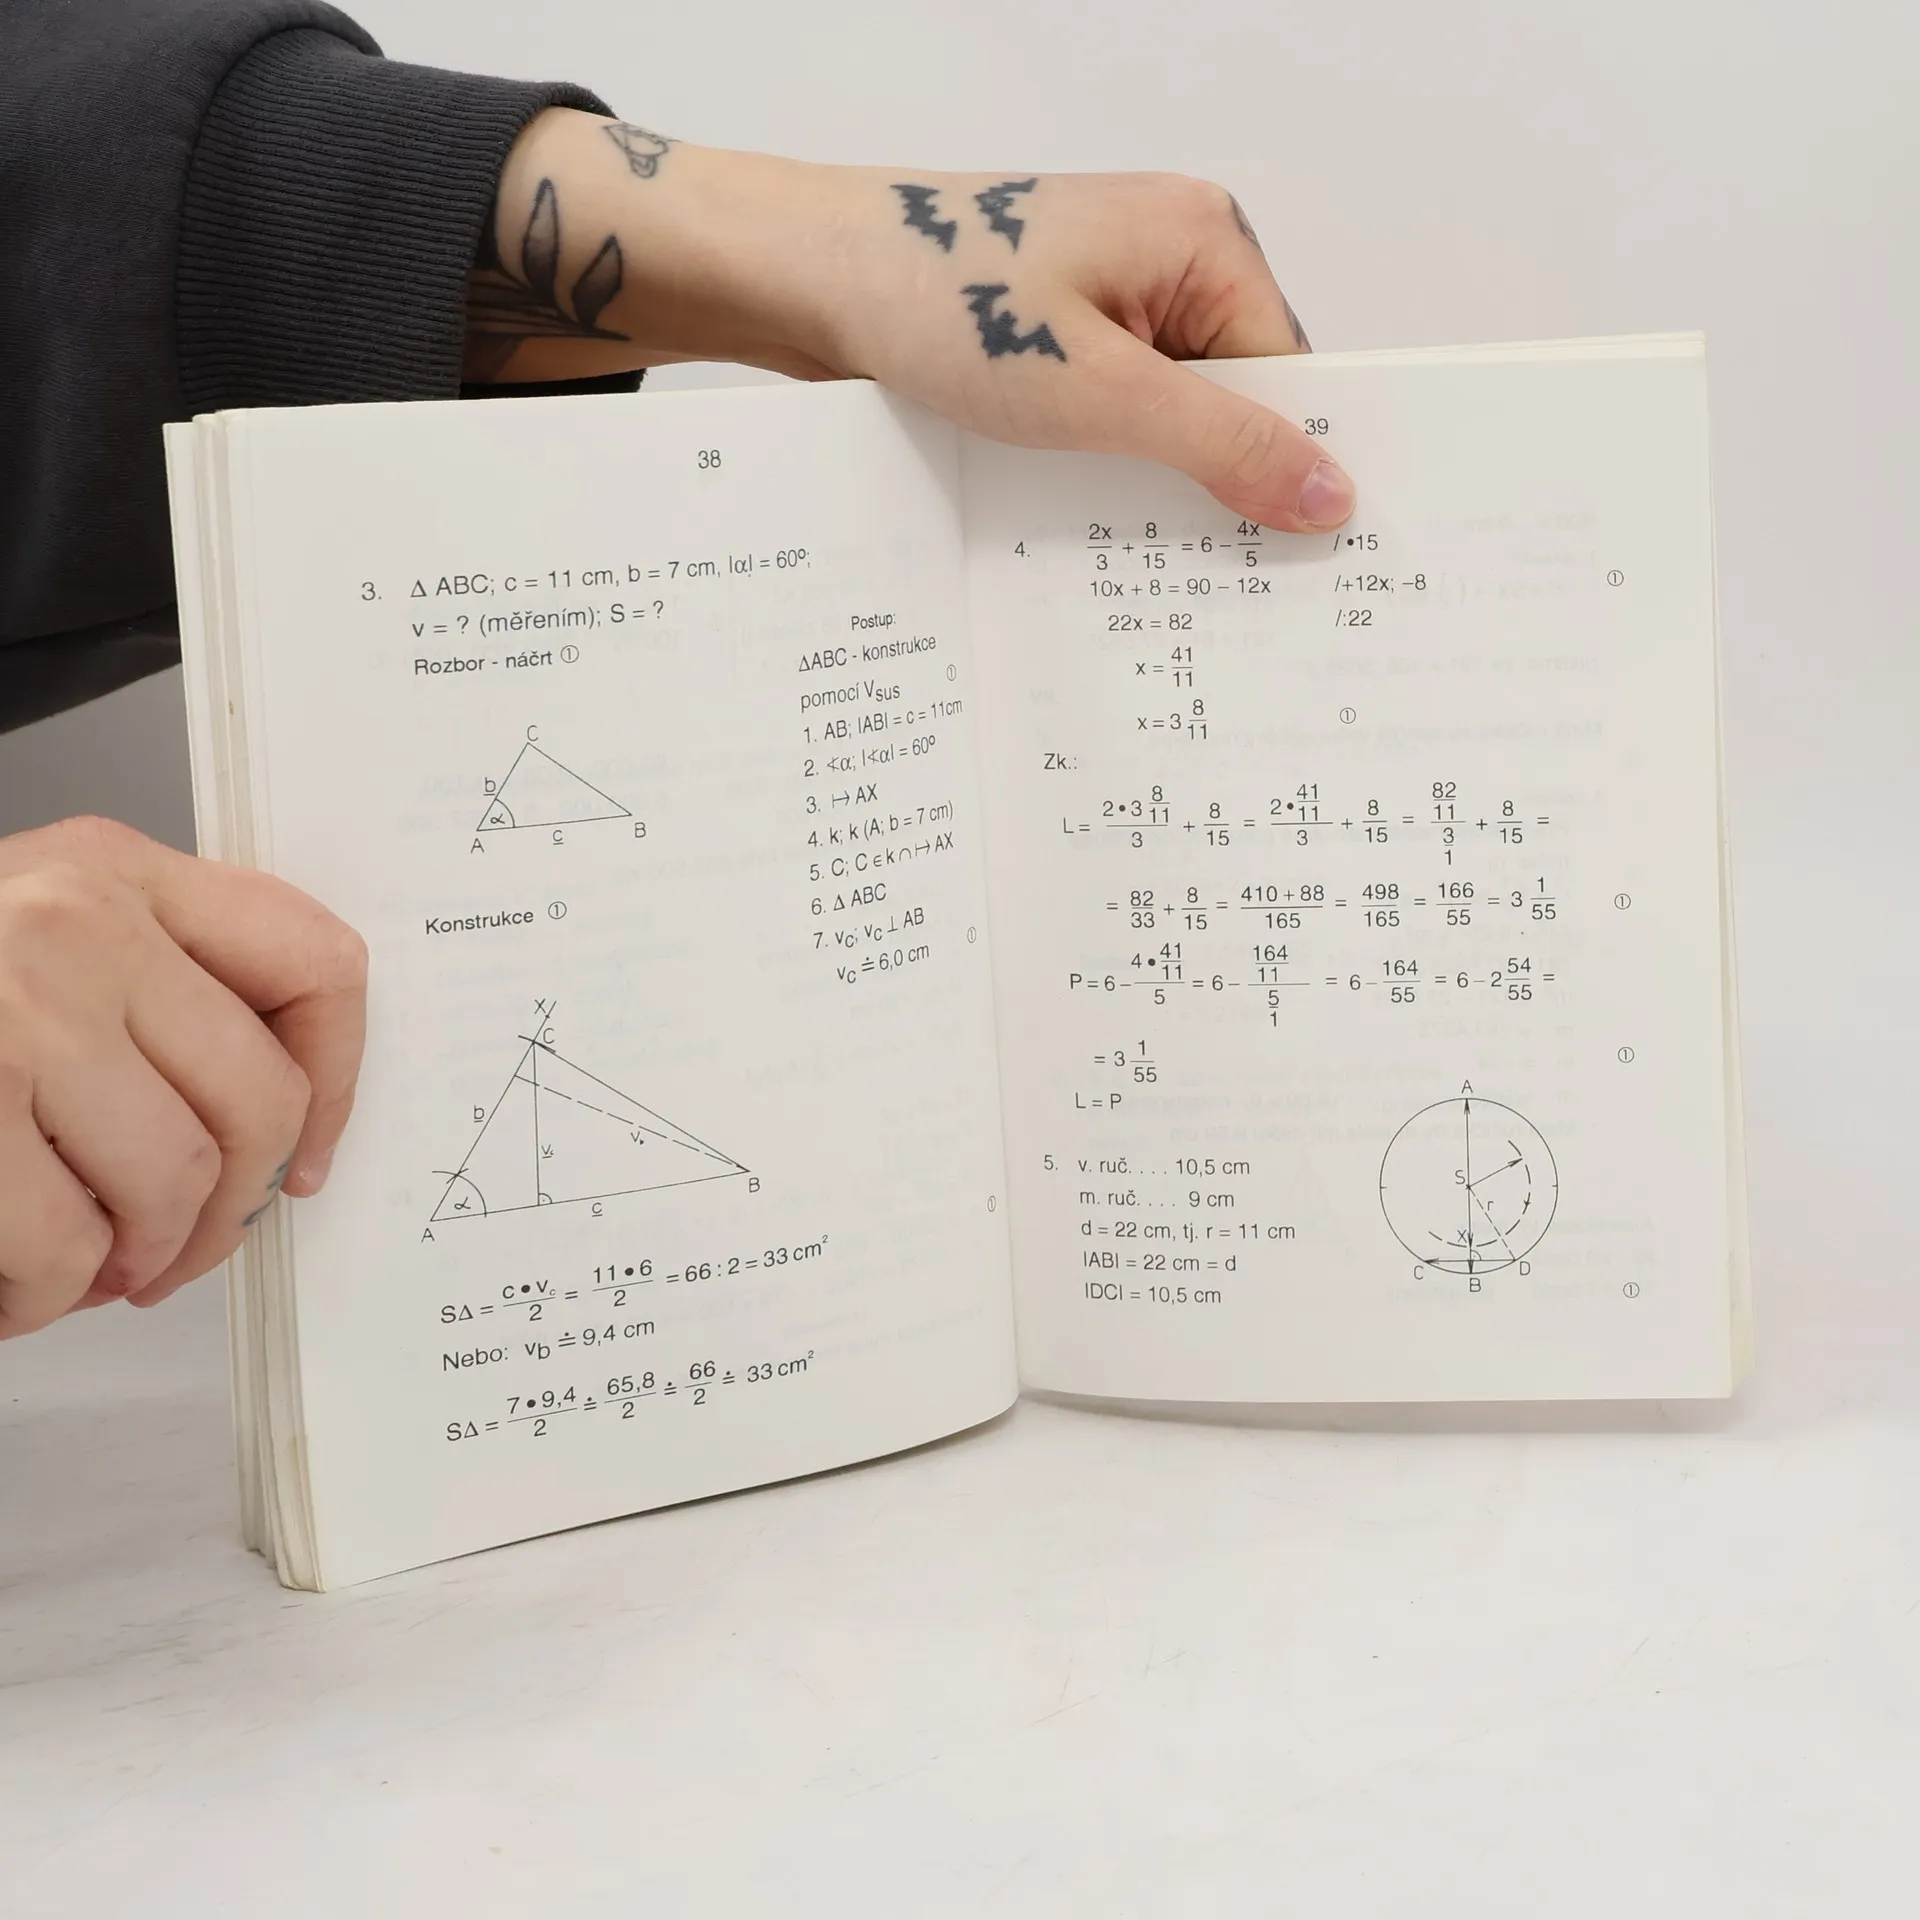 38
3. Δ ABC; c = 11 cm, b = 7 cm, |α| = 60°;
v = ? (měřením); S = ?
Rozbor - náčrt ①
C
b
α
A
c
B
Postup:
ΔABC - konstrukce
pomocí Vsus ①
1. AB; |AB| = c = 11cm
2. ∢α; |∢α| = 60°
3. ↦ AX
4. k; k (A; b = 7 cm)
5. C; C ∈ k ∩ ↦ AX
6. Δ ABC
7. vc; vc ⊥ AB
vc ≐ 6,0 cm ①
Konstrukce ①
X
C
b
vc
α
A
c
B
①
SΔ = c • vc / 2 = 11 • 6 / 2 = 66 : 2 = 33 cm²
Nebo: vb ≐ 9,4 cm
SΔ = 7 • 9,4 / 2 ≐ 65,8 / 2 ≐ 66 / 2 ≐ 33 cm²
39
4. 2x/3 + 8/15 = 6 – 4x/5 /•15
10x + 8 = 90 – 12x /+12x; –8 ①
22x = 82 /:22
x = 41/11
x = 3 8/11 ①
Zk.:
L = 2•3 8/11 / 3 + 8/15 = 2• 41/11 / 3 + 8/15 = 82/11 / 3/1 + 8/15 =
= 82/33 + 8/15 = 410 + 88 / 165 = 498/165 = 166/55 = 3 1/55 ①
P = 6 – 4• 41/11 / 5 = 6 – 164/11 / 5/1 = 6 – 164/55 = 6 – 2 54/55 =
= 3 1/55 ①
L = P
5. v. ruč. . . . 10,5 cm
m. ruč. . . . 9 cm
d = 22 cm, tj. r = 11 cm
|AB| = 22 cm = d
|DC| = 10,5 cm
A
S
r
X
C
B
D
①